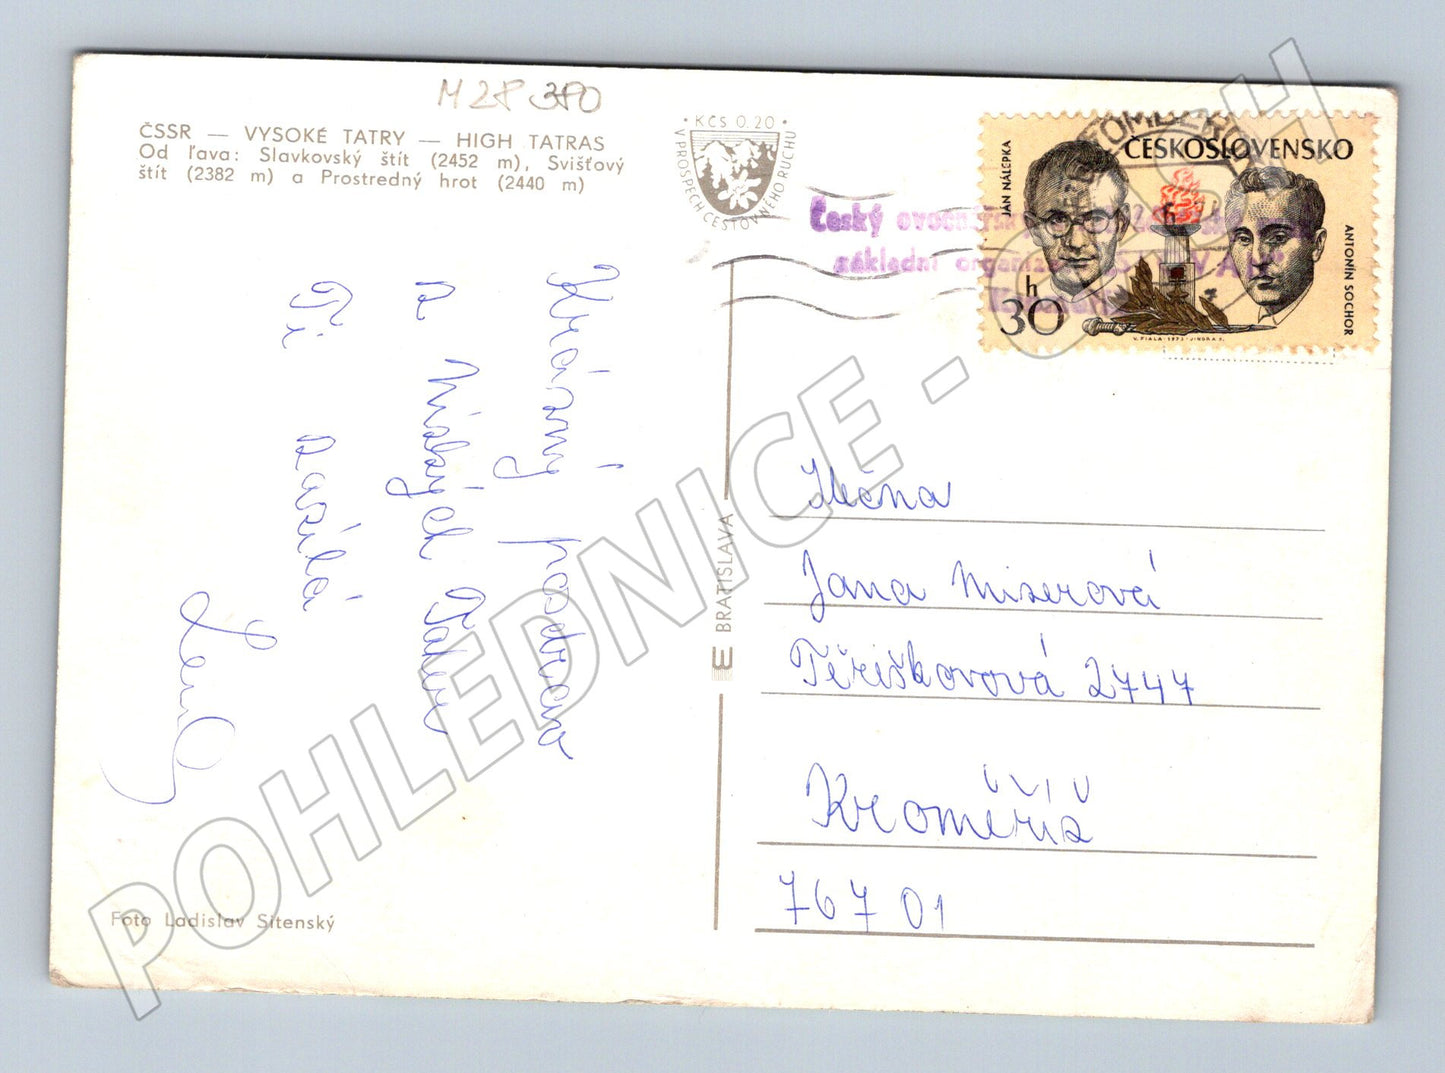 M 28 380
ČSSR — VYSOKÉ TATRY — HIGH TATRAS
Od ľava: Slavkovský štít (2452 m), Svišťový
štít (2382 m) a Prostredný hrot (2440 m)
• KČS 0.20 •
V PROSPECH CESTOVNÉHO RUCHU
ČESKOSLOVENSKO
JÁN NÁLEPKA
ANTONÍN SOCHOR
30 h
V. FIALA · 1973 · JINDRA S.
Český
základní
Krásný pozdrav
z Nízkých Tater
Ti zasílá
BRATISLAVA
Slečna
Jana Miserová
Těřiškovová 2747
Kroměříž
767 01
Foto Ladislav Sitenský
POHLEDNICE - CASH